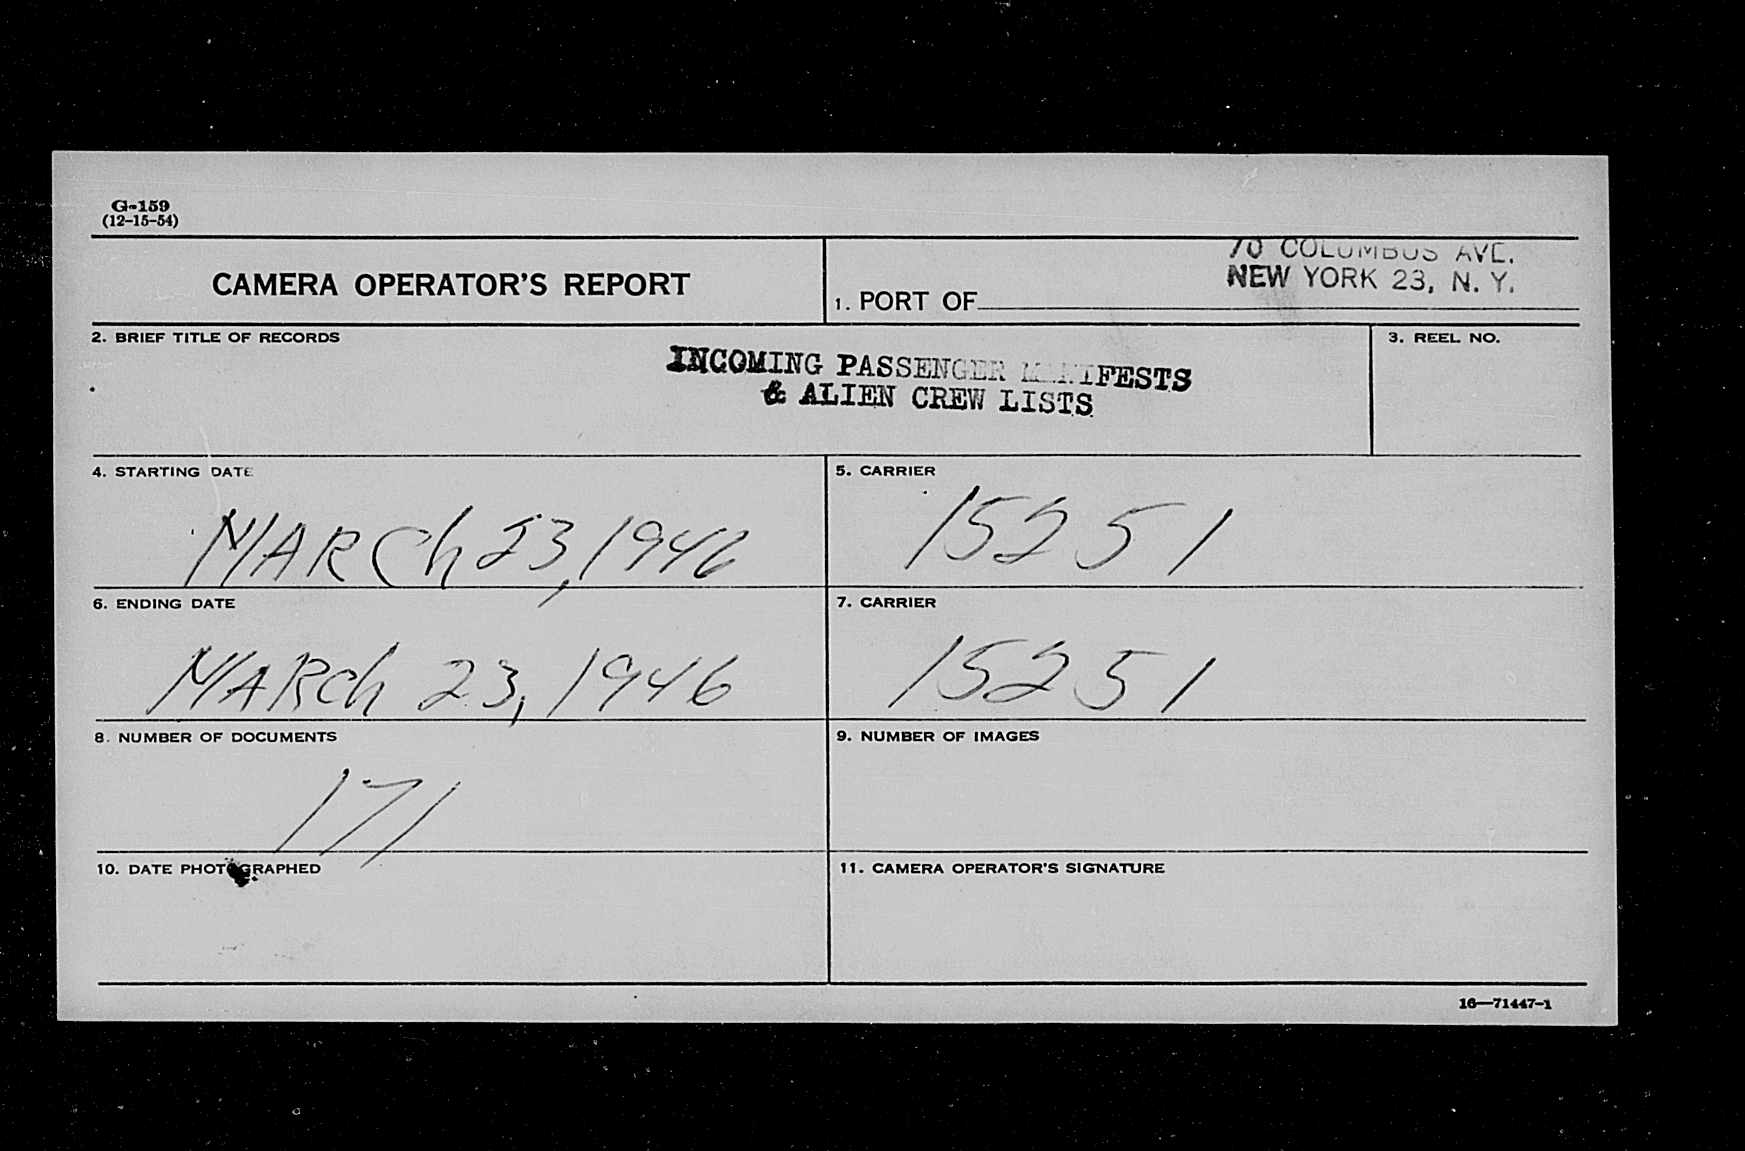 G-159
(12-15-54)
CAMERA OPERATOR'S REPORT
70 COLUMBUS AVE.
NEW YORK 23, N. Y.
1. PORT OF
2. BRIEF TITLE OF RECORDS
INCOMING PASSENGER MANIFESTS
& ALIEN CREW LISTS
3. REEL NO.
4. STARTING DATE
MARCh 23, 1946
5. CARRIER
15251
6. ENDING DATE
MARCh 23, 1946
7. CARRIER
15251
8. NUMBER OF DOCUMENTS
171
9. NUMBER OF IMAGES
10. DATE PHOTOGRAPHED
11. CAMERA OPERATOR'S SIGNATURE
16—71447-1